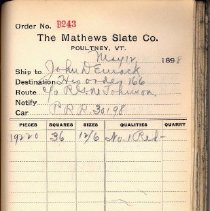 Order No. B243
The Mathews Slate Co.
POULTNEY, VT.
May 12 1898
Ship to John D Emack
Destination His order 166
Route c/o R Line Johnson,
Notify
Car P.R.R. 30198
PIECES SQUARES SIZES QUALITIES QUARRY
19220 36 12/6 No. 1 Red